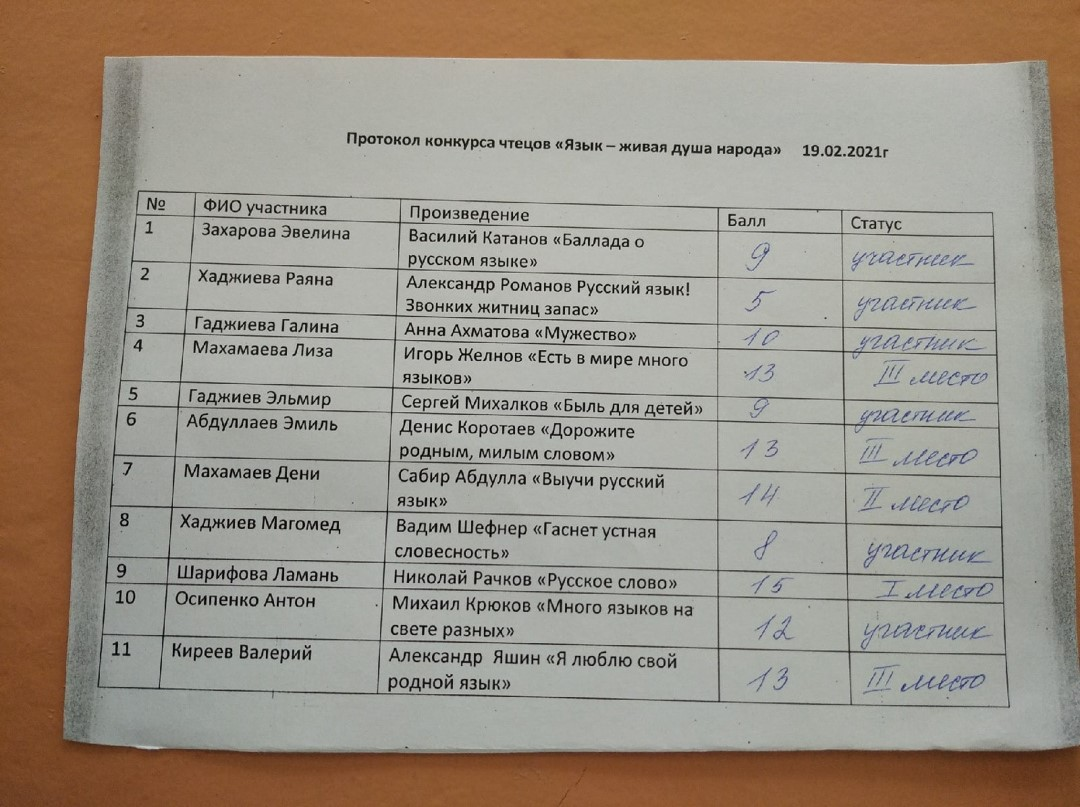 Протокол конкурса чтецов «Язык – живая душа народа» 19.02.2021г
№ ФИО участника Произведение Балл Статус
1 Захарова Эвелина Василий Катанов «Баллада о 9 участник
русском языке»
2 Хаджиева Раяна Александр Романов Русский язык! 5 участник
Звонких житниц запас»
3 Гаджиева Галина Анна Ахматова «Мужество» 10 участник
4 Махамаева Лиза Игорь Желнов «Есть в мире много 13 III место
языков»
5 Гаджиев Эльмир Сергей Михалков «Быль для детей» 9 участник
6 Абдуллаев Эмиль Денис Коротаев «Дорожите 13 III место
родным, милым словом»
7 Махамаев Дени Сабир Абдулла «Выучи русский 14 II место
язык»
8 Хаджиев Магомед Вадим Шефнер «Гаснет устная 8 участник
словесность»
9 Шарифова Ламань Николай Рачков «Русское слово» 15 I место
10 Осипенко Антон Михаил Крюков «Много языков на 12 участник
свете разных»
11 Киреев Валерий Александр Яшин «Я люблю свой 13 III место
родной язык»